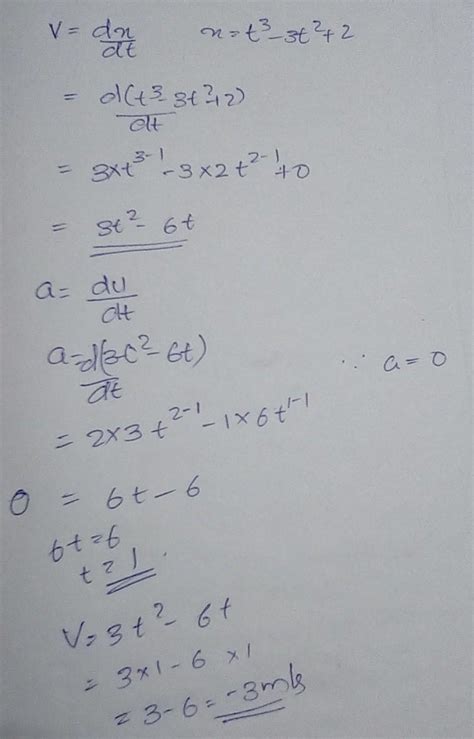 V = dx/dt x = t³ - 3t² + 2
= d(t³ - 3t² + 2)/dt
= 3×t³⁻¹ - 3×2t²⁻¹ + 0
= 3t² - 6t
a = du/dt
a = d(3t² - 6t)/dt ∵ a = 0
= 2×3t²⁻¹ - 1×6t¹⁻¹
0 = 6t - 6
6t = 6
t = 1.
V = 3t² - 6t
= 3×1 - 6×1
= 3 - 6 = -3m/s